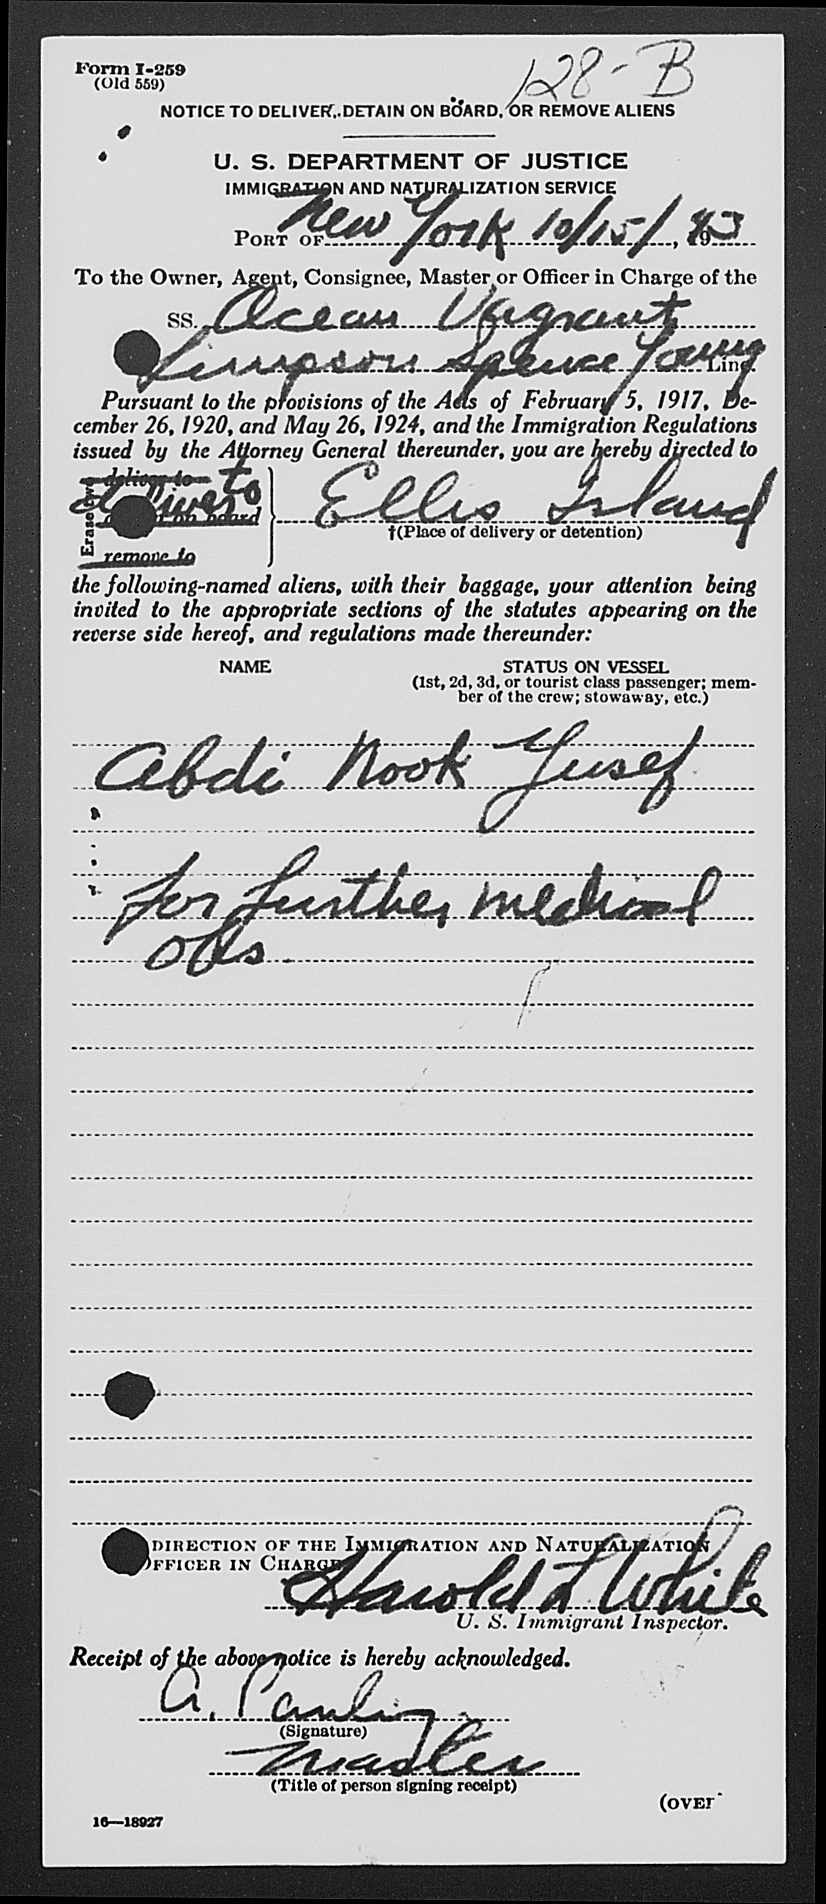 Form I-259
(Old 559)
128-B
NOTICE TO DELIVER, DETAIN ON BOARD, OR REMOVE ALIENS
U. S. DEPARTMENT OF JUSTICE
IMMIGRATION AND NATURALIZATION SERVICE
PORT OF New York 10/15/, 1943
To the Owner, Agent, Consignee, Master or Officer in Charge of the
SS. Ocean Vagrant
Simpson Spence Young Line.
Pursuant to the provisions of the Acts of February 5, 1917, De-
cember 26, 1920, and May 26, 1924, and the Immigration Regulations
issued by the Attorney General thereunder, you are hereby directed to
Erase two
deliver to
deliver to
on board
remove to
Ellis Island
†(Place of delivery or detention)
the following-named aliens, with their baggage, your attention being
invited to the appropriate sections of the statutes appearing on the
reverse side hereof, and regulations made thereunder:
NAME STATUS ON VESSEL
(1st, 2d, 3d, or tourist class passenger; mem-
ber of the crew; stowaway, etc.)
Abdi Nook Yusef
for further medical
obs
DIRECTION OF THE IMMIGRATION AND NATURALIZATION
OFFICER IN CHARGE
Harold L White
U. S. Immigrant Inspector.
Receipt of the above notice is hereby acknowledged.
A.
(Signature)
Master
(Title of person signing receipt)
(OVER
16—18927